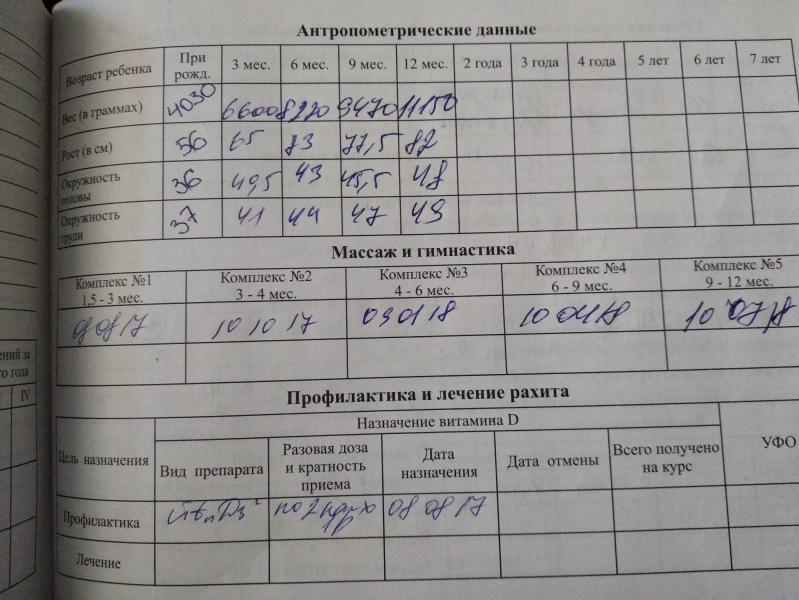 Антропометрические данные
Возраст ребенка При рожд. 3 мес. 6 мес. 9 мес. 12 мес. 2 года 3 года 4 года 5 лет 6 лет 7 лет
Вес (в граммах) 4030 6600 8220 9470 11150
Рост (в см) 56 65 73 77,5 82
Окружность головы 36 43 45,5 48
Окружность груди 37 41 44 47 49
Массаж и гимнастика
Комплекс №1 Комплекс №2 Комплекс №3 Комплекс №4 Комплекс №5
1,5 - 3 мес. 3 - 4 мес. 4 - 6 мес. 6 - 9 мес. 9 - 12 мес.
08 08 17 10 10 17 09 01 18 10 04 18 10 07 18
Профилактика и лечение рахита
ений за
го года
IV
Назначение витамина D
Цель назначения Вид препарата Разовая доза и кратность приема Дата назначения Дата отмены Всего получено на курс УФО
Профилактика D3 по 2 08 08 17
Лечение